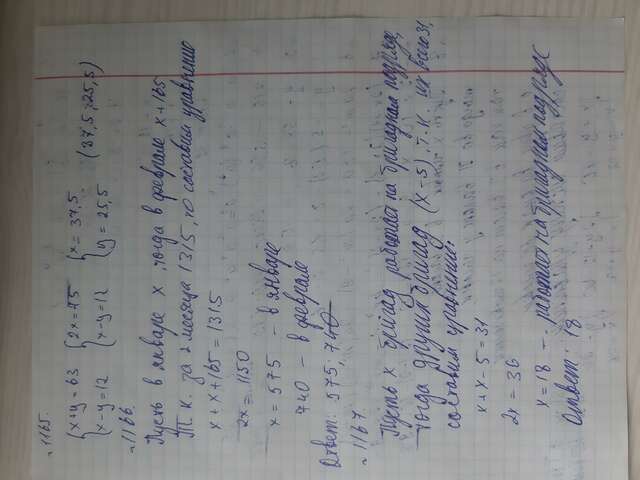 ~1165.
{x+y=63 {2x=75 {x=37,5 (37,5;25,5)
{x-y=12 {x-y=12 {y=25,5
~1166
Пусть в январе x, тогда в феврале x+165
Т.к. за 2 месяца 1315, то составим уравнению
x+x+165=1315
2x=1150
x=575 - в январе
740 - в феврале
Ответ: 575, 740
~1167.
Пусть x бригад работает на бригадном подряде,
тогда других бригад (x-5), т.к. их всего 31,
составим уравнение.
x+x-5=31
2x=36
x=18 - работает на бригадном подряде
Ответ: 18